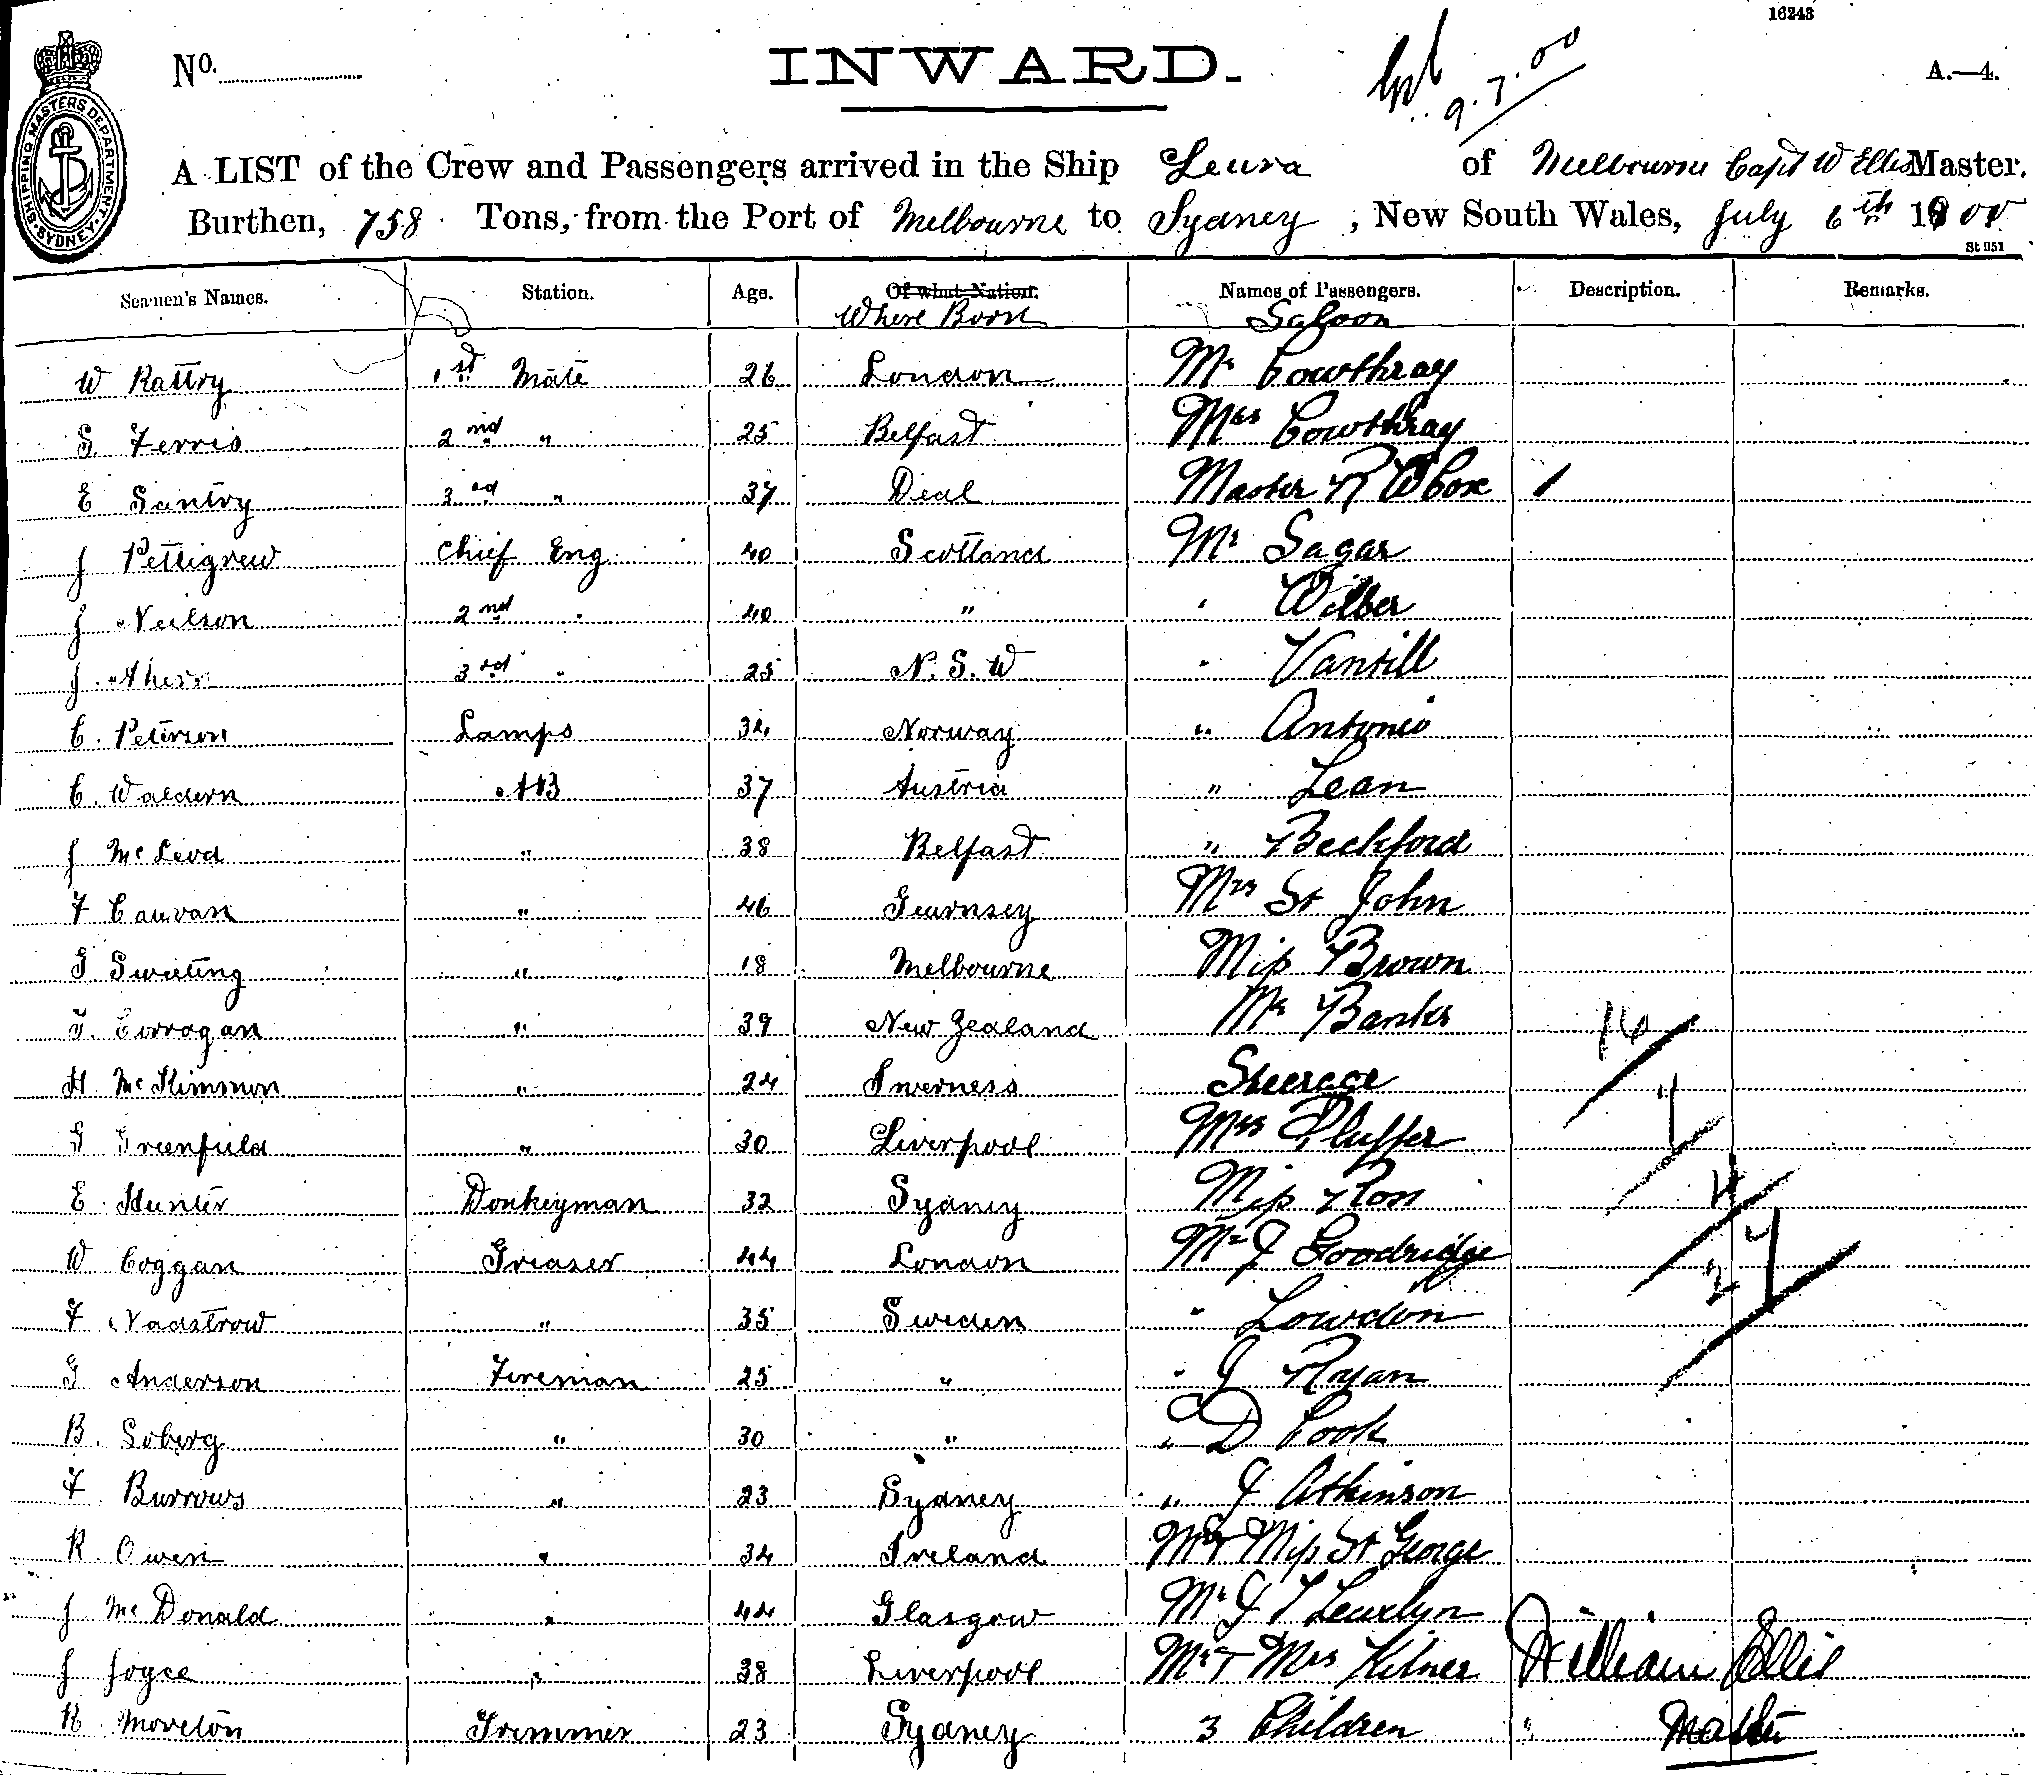 16243
No.
INWARD.
9.7.00
A.—4.
SHIPPING MASTERS DEPARTMENT. SYDNEY.
A LIST of the Crew and Passengers arrived in the Ship Leura of Melbourne Capt W Ellis Master.
Burthen, 758 Tons, from the Port of Melbourne to Sydney, New South Wales, July 6th 1900
St 951
Seamen's Names. Station. Age. Of what Nation. Names of Passengers. Description. Remarks.
Where Born Saloon
W Rattry 1st Mate 26 London Mr Cowthray
S Ferris 2nd " 25 Belfast Mrs Cowthray
E Santry 3rd " 37 Deal Master R W Cox 1
J Pettigrew Chief Eng 40 Scotland Mr Sagar
J Neilson 2nd " 40 " " Wilber
J Ahern 3rd " 25 N.S.W " Vansill
C. Peterson Lamps 34 Norway " Antonio
C. Waldern AB 37 Austria " Lean
J McLeod " 38 Belfast " Beckford
F Cauvan " 46 Guernsey Mrs St John
G Sweeting " 18 Melbourne Miss Brown
T. Corrogan " 39 New Zealand Mr Banks 16
H. McKimmon " 24 Inverness Steerage
G Greenfield " 30 Liverpool Mrs Pluffer
E Hunter Donkeyman 32 Sydney Miss Ron
W Coggan Greaser 44 London Mr J Goodridge 27
F Nadstrow " 35 Sweden " Lowdon
G Anderson Fireman 25 " " J Ryan
B. Soberg " 30 " " D Cook
F Burrows " 23 Sydney " J Atkinson
R. Owen " 34 Ireland Mr & Miss St George
J McDonald " 44 Glasgow Mr J T Lewelyn
J Joyce " 38 Liverpool Mr & Mrs Kilner William Ellis
R Moreton Trimmer 23 Sydney 3 Children Master